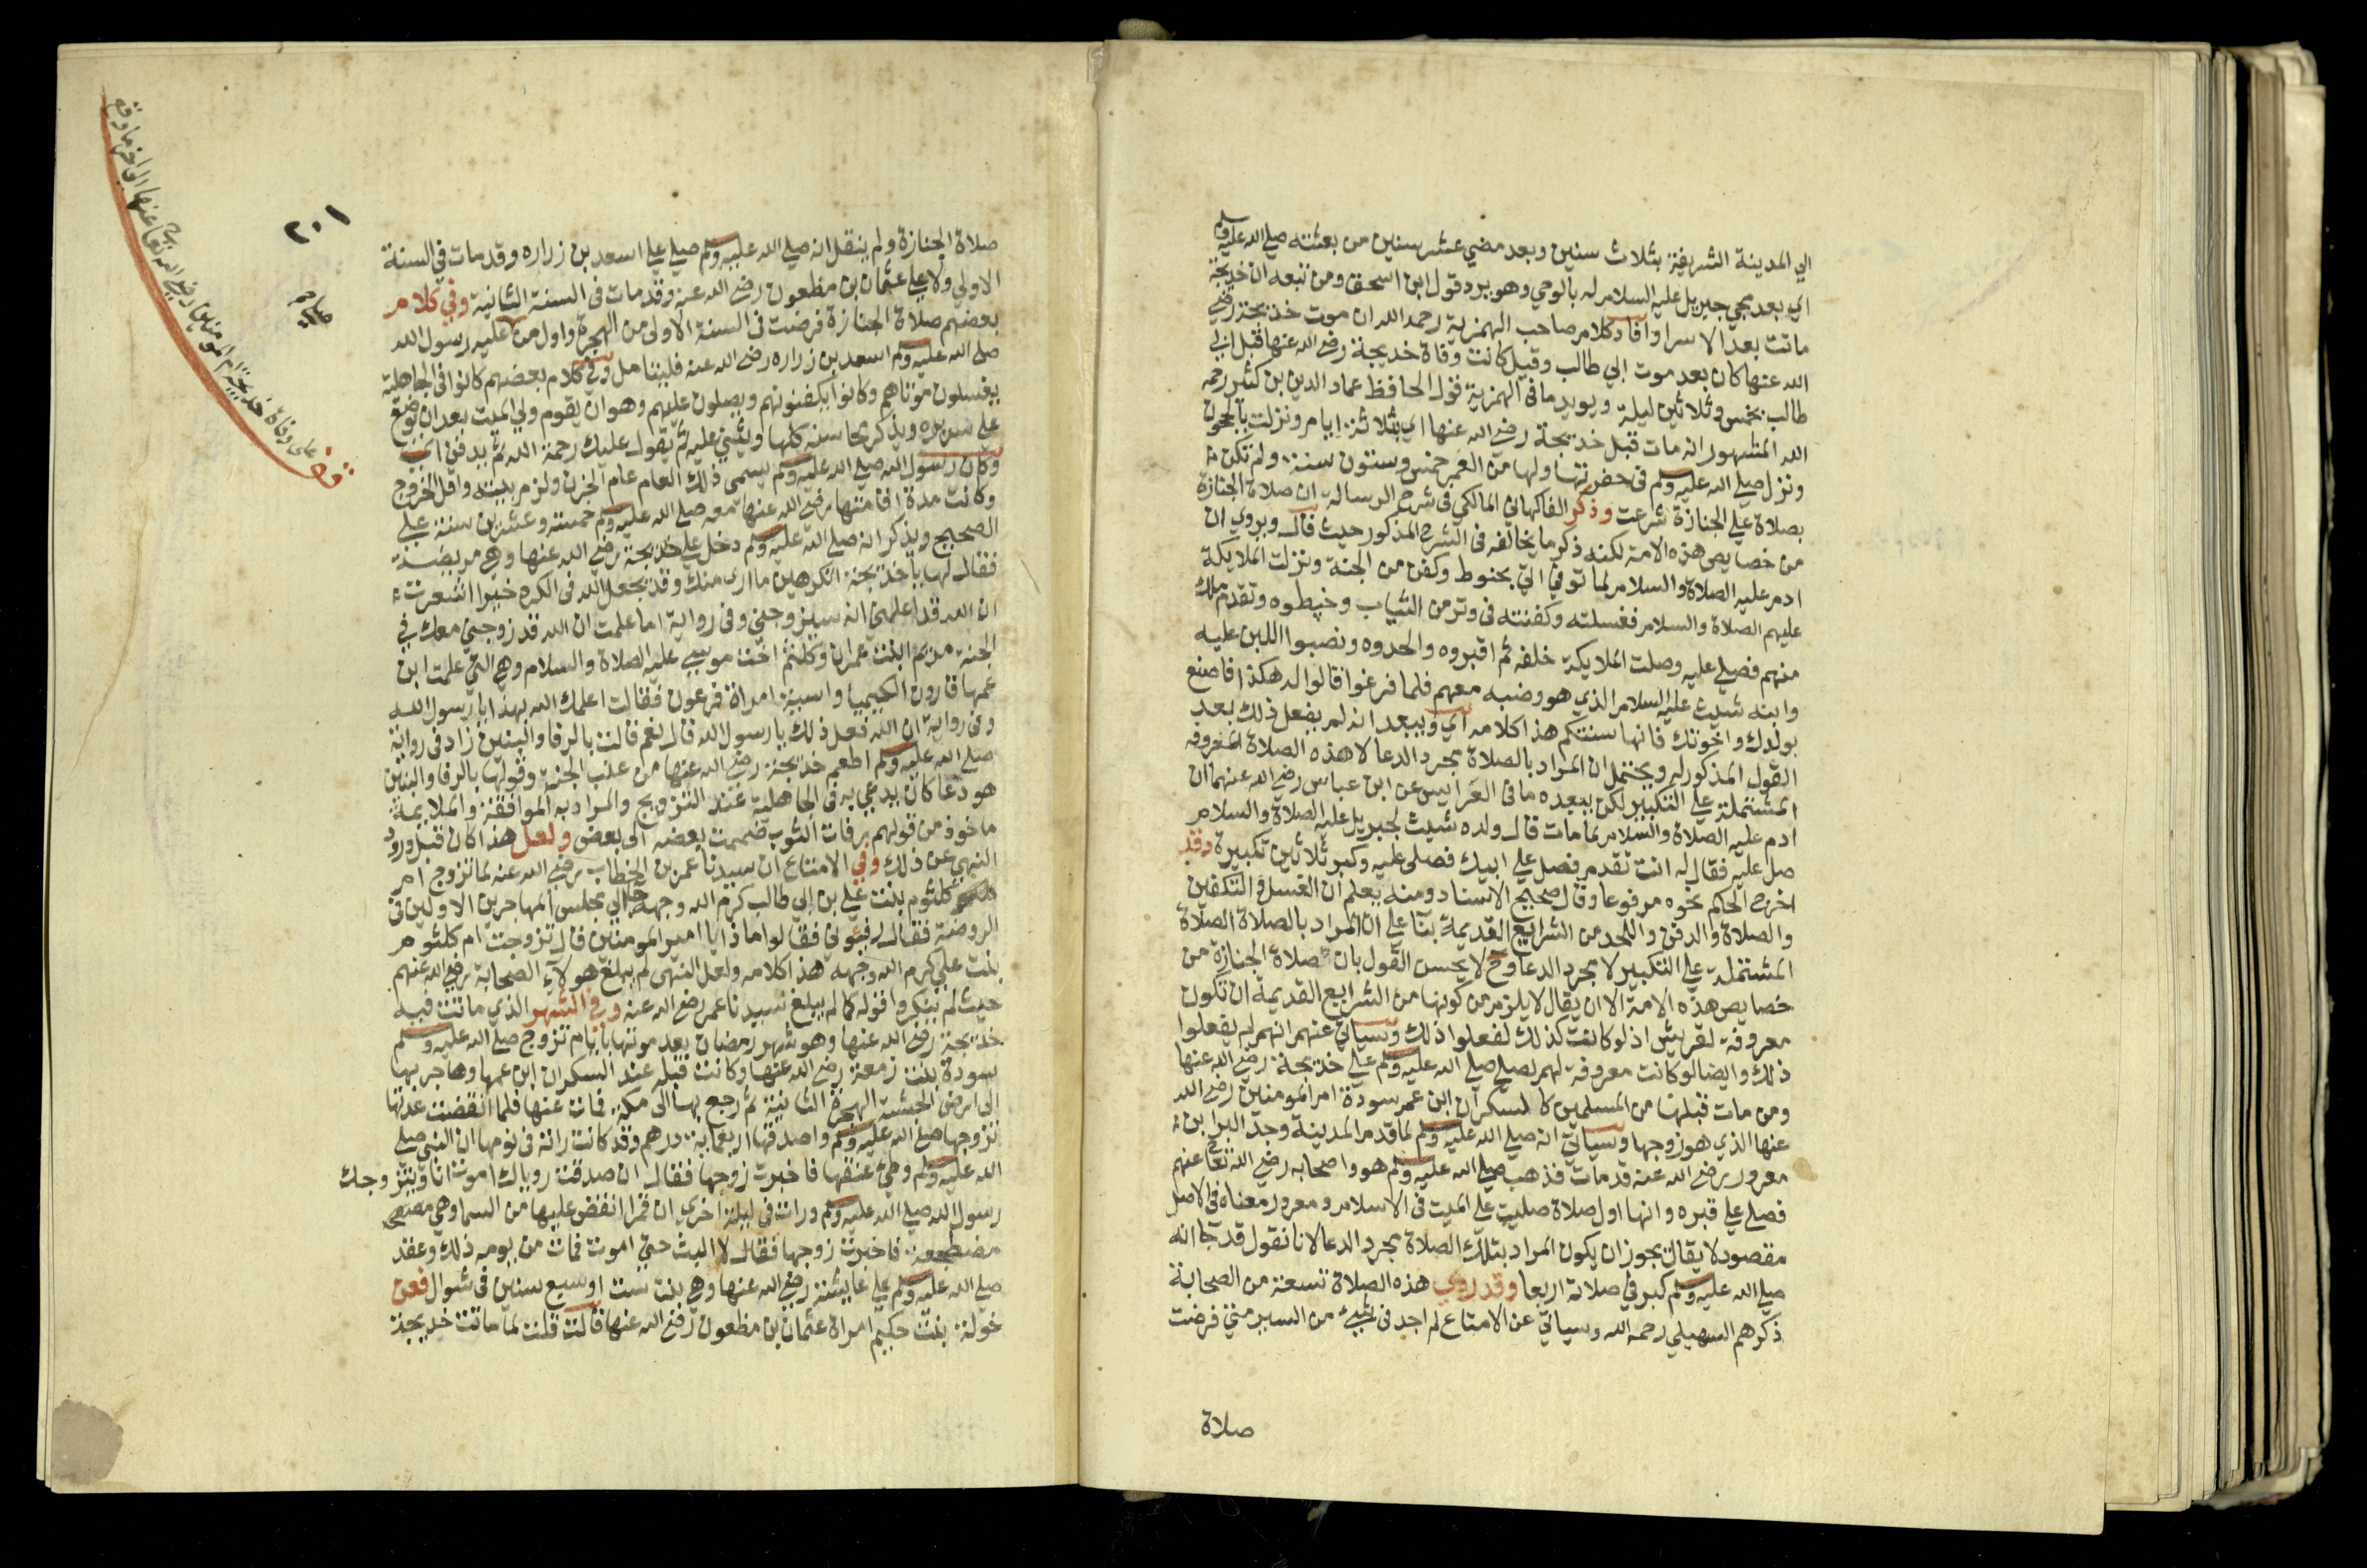 الي المدينة الشريفة بثلاث سنين وبعد مضي عشر سنين من بعثته صلي الله عليه وسلم
اي بعد مجي جبريل عليه السلام له بالوحي وهو يرد قول ابن اسحق ومن تبعه ان خديجة
ماتت بعد الاسرا وافاد كلام صاحب الهمزية رحمه الله ان موت خديجة رضي
الله عنها كان بعد موت ابي طالب وقيل كانت وفاة خديجة رضي الله عنها قبل ابي
طالب بخمس وثلاثين ليلة ويويد ما في الهمزية قول الحافظ عماد الدين بن كثير رحمه
الله المشهور انه مات قبل خديجة رضي الله عنها اي بثلاثة ايام ونزلت بالحجون
ونزل صلي الله عليه وسلم في حفرتها ولها من العمر خمس وستون سنة ولم تكن
بصلاة علي الجنازة شرعت وذكر الفاكهاني المالكي في شرح الرسالة ان صلاة الجنازة
من خصايص هذه الامة لكنه ذكر ما يخالفه في الشرح المذكور حيث قال ويروي ان
ادم عليه الصلاة والسلام لما توفي اتي بحنوط وكفن من الجنة ونزلت الملايكة
عليهم الصلاة والسلام فغسلته وكفنته في وتر من الثياب وحنطوه وتقدم ملك
منهم فصلي عليه وصلت الملايكة خلفه ثم اقبروه والحدوه ونصبوا اللبن عليه
وابنه شيث عليه السلام الذي هو وصيه معهم فلما فرغوا قالوا له هكذا فاصنع
بولدك واخوتك فانها سنتكم هذا كلامه اي ويبعد انه لم يفعل ذلك بعد
القول المذكور له ويحتمل ان المراد بالصلاة مجرد الدعا لا هذه الصلاة المعروفه
المشتملة علي التكبير لكن يبعده ما في العرايس عن ابن عباس رضي الله عنهما ان
ادم عليه الصلاة والسلام لما مات قال ولده شيث لجبريل عليه الصلاة والسلام
صل عليه فقال له انت تقدم فصل علي ابيك فصلي عليه وكبر ثلاثين تكبيرة وقد
اخرج الحاكم نحوه مرفوعا وقال صحيح الاسناد ومنه يعلم ان الغسل والتكفين
والصلاة والدفن واللحد من الشرايع القديمة بنا علي ان المراد بالصلاة الصلاة
المشتملة علي التكبير لا مجرد الدعا وح لا يحسن القول بان صلاة الجنازة من
خصايص هذه الامة الا ان يقال لا يلزم من كونها من الشرايع القديمة ان تكون
معروفة لقريش اذ لو كانت كذلك لفعلوا ذلك وسياتي عنهم انهم لم يفعلوا
ذلك وايضا لو كانت معروفة لهم لصلي صلي الله عليه وسلم علي خديجة رضي الله عنها
ومن مات قبلها من المسلمين كالسكران ابن عم سودة ام المومنين رضي الله
عنها الذي هو زوجها وسياتي انه صلي الله عليه وسلم لما قدم المدينة وجد البرا بن
معرور رضي الله عنه قد مات فذهب صلي الله عليه وسلم هو واصحابه رضي الله تعالي عنهم
فصلي علي قبره وانها اول صلاة صليت علي الميت في الاسلام ومعرور معناه في الاصل
مقصود لا يقال يجوز ان يكون المراد بتلك الصلاة مجرد الدعا لانا نقول قد جا انه
صلي الله عليه وسلم كبر في صلاته اربعا وقد روي هذه الصلاة تسعة من الصحابة
ذكرهم السهيلي رحمه الله وسياتي عن الامتاع لم اجد في شيء من السير متي فرضت
صلاة
٢٠١
صلاة الجنازة ولم ينقل انه صلي الله عليه وسلم صلي علي اسعد بن زراره وقد مات في السنة
الاولي ولا علي عثمان بن مظعون رضي الله عنه وقد مات في السنة الثانية وفي كلام
بعضهم صلاة الجنازة فرضت في السنة الاولي من الهجرة واول من عليه رسول الله
صلي الله عليه وسلم اسعد بن زراره رضي الله عنه فليتامل وفي كلام بعضهم كانوا في الجاهلية
يغسلون موتاهم وكانوا يكفنونهم ويصلون عليهم وهو ان يقوم ولي الميت بعد ان يوضع
علي سريره ويذكر محاسنه كلها ويثني عليه ثم يقول عليك رحمة الله ثم يدفن انتهى
وكان رسول الله صلي الله عليه وسلم يسمي ذلك العام عام الحزن ولزم بيته واقل الخروج
وكانت مدة اقامتها رضي الله عنها معه صلي الله عليه وسلم خمسة وعشرين سنة علي
الصحيح ويذكر انه صلي الله عليه وسلم دخل علي خديجة رضي الله عنها وهي مريضة
فقال لها يا خديجة اتكرهين ما اري منك وقد يجعل الله في الكره خيرا اشعرت
ان الله قد اعلمني انه سيزوجني وفي رواية اما علمت ان الله قد زوجني معك في
الجنة مريم ابنت عمران وكلثم اخت موسي عليه الصلاة والسلام وهي التي علمت ابن
عمها قارون الكيميا واسية امراة فرعون فقالت اعلمك الله بهذا يا رسول الله
وفي رواية ان الله فعل ذلك يا رسول الله قال نعم قالت بالرفا والبنين زاد في رواية
صلي الله عليه وسلم اطعم خديجة رضي الله عنها من عنب الجنة وقولها بالرفا والبنين
هو دعا كان يدعي به في الجاهلية عند التزويج والمراد به الموافقة والملايمة
ماخوذ من قولهم رفات الثوب ضممت بعضه الي بعض ولعل هذا كان قبل ورود
النهي عن ذلك وفي الامتاع ان سيدنا عمر بن الخطاب رضي الله عنه لما تزوج ام
كلثوم بنت علي بن ابي طالب كرم الله وجهه جا الي مجلس المهاجرين الاولين في
الروضة فقال رفيوني فقالوا ماذا يا امير المومنين قال تزوجت ام كلثوم
بنت علي كرم الله وجهه هذا كلامه ولعل النهي لم يبلغ هولاء الصحابة رضي الله عنهم
حيث لم ينكروا قوله كما لم يبلغ سيدنا عمر رضي الله عنه وفي الشهر الذي ماتت فيه
خديجة رضي الله عنها وهو شهر رمضان بعد موتها بايام تزوج صلي الله عليه وسلم
سودة بنت زمعة رضي الله عنها وكانت قبله عند السكران ابن عمها وهاجر بها
الي ارض الحبشة الهجرة الثانية ثم رجع بها الي مكة فمات عنها فلما انقضت عدتها
تزوجها صلي الله عليه وسلم واصدقها اربعماية درهم وقد كانت رات في نومها ان النبي صلي
الله عليه وسلم وطي عنقها فاخبرت زوجها فقال ان صدقت روياك اموت انا ويتزوجك
رسول الله صلي الله عليه وسلم ورات في ليلة اخري ان قمرا انقض عليها من السما وهي
مضطجعة فاخبرت زوجها فقال لا البث حتي اموت فمات من يومه ذلك وعقد
صلي الله عليه وسلم علي عايشة رضي الله عنها وهي بنت ست او سبع سنين في شوال فعن
خولة بنت حكيم امراة عثمان بن مظعون رضي الله عنها قالت قلت لما ماتت خديجة
قف على وفاة خديجة ام المومنين رضي الله تعا عنها الي اخر ما وقع